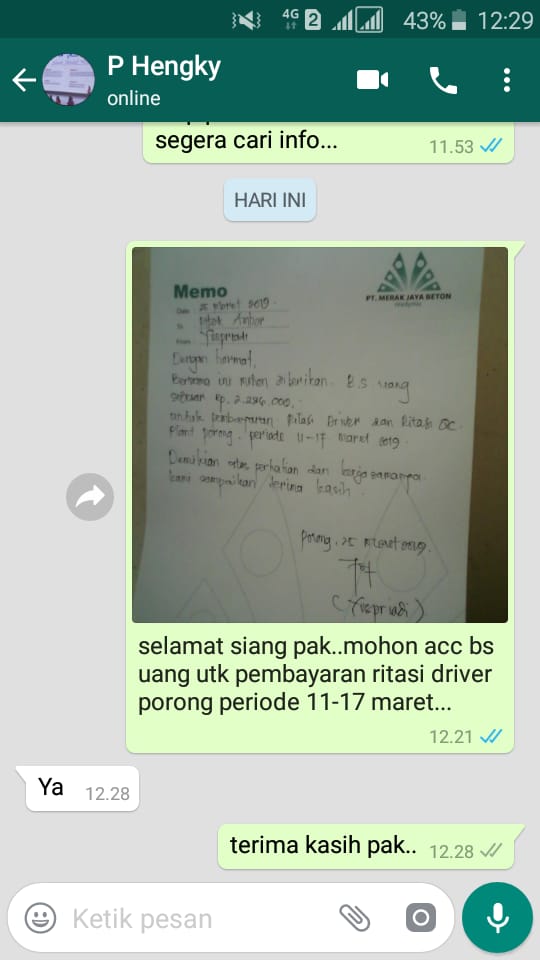 4G 2 43% 12:29
P Hengky
online
segera cari info...
11.53
HARI INI
Memo
PT. MERAK JAYA BETON
readymix
Date 25 Maret 2019
To
From Yuspriadi
Dengan hormat,
Bersama ini mohon diberikan B.S uang
sebesar Rp. 2.286.000,-
untuk pembayaran Ritasi Driver dan Ritasi QC
Plant porong. periode 11-17 Maret 2019.
Demikian atas perhatian dan kerja samanya
kami sampaikan terima kasih.
Porong, 25 Maret 2019.
(Yuspriadi)
selamat siang pak..mohon acc bs
uang utk pembayaran ritasi driver
porong periode 11-17 maret...
12.21
Ya 12.28
terima kasih pak.. 12.28
Ketik pesan